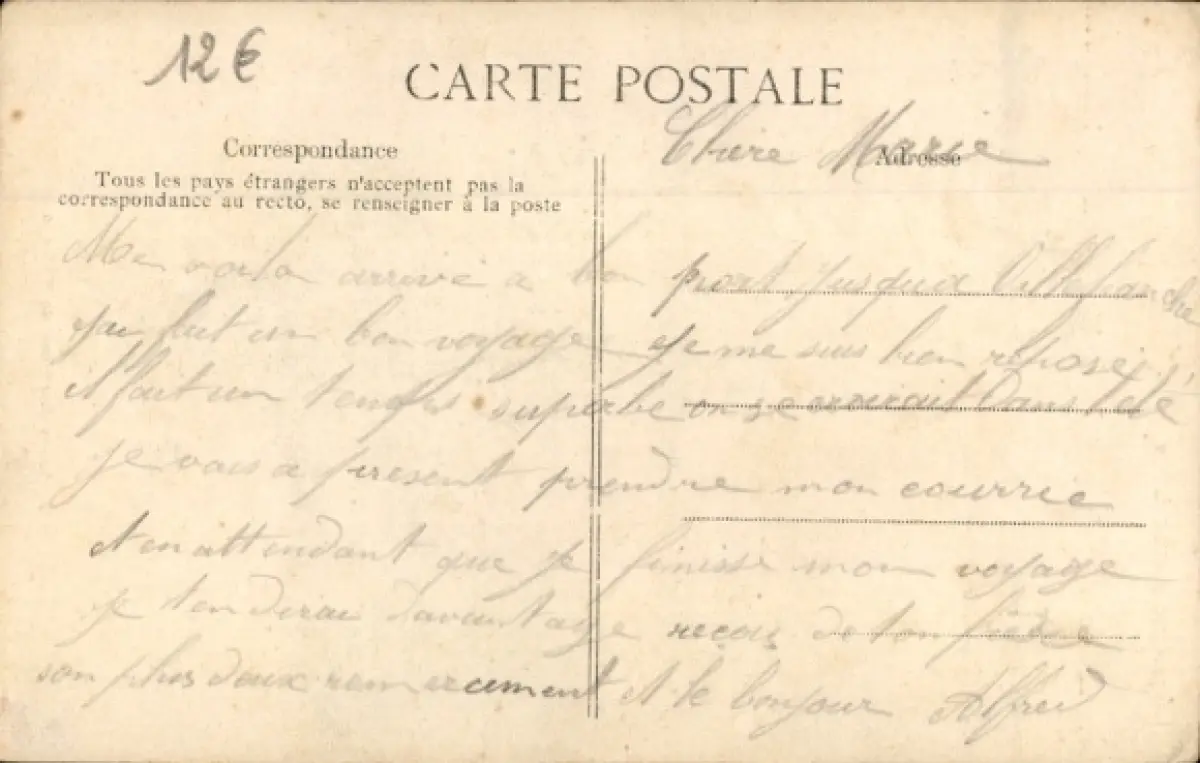 12€
CARTE POSTALE
Correspondance
Adresse
Tous les pays étrangers n'acceptent pas la
correspondance au recto, se renseigner à la poste
Chere Marie
Me voila arrivé a bon port jusqua Villefranche
fait un bon voyage je me suis bien reposé
il fait un temps superbe on se croirait dans lété
je vais a present prendre mon courrie
et en attendant que je finisse mon voyage
je ten dirai davantage reçois de ton
son plus doux remerciment et le bonjour Alfred